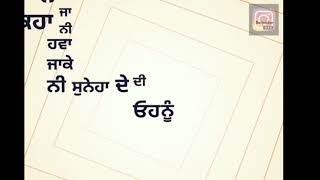 ਕਹਾ ਜਾ
ਨੀ
ਹਵਾ
ਜਾਕੇ
ਨੀ ਸੁਨੇਹਾ ਦੇ ਦੀ
ਓਹਨੂੰ